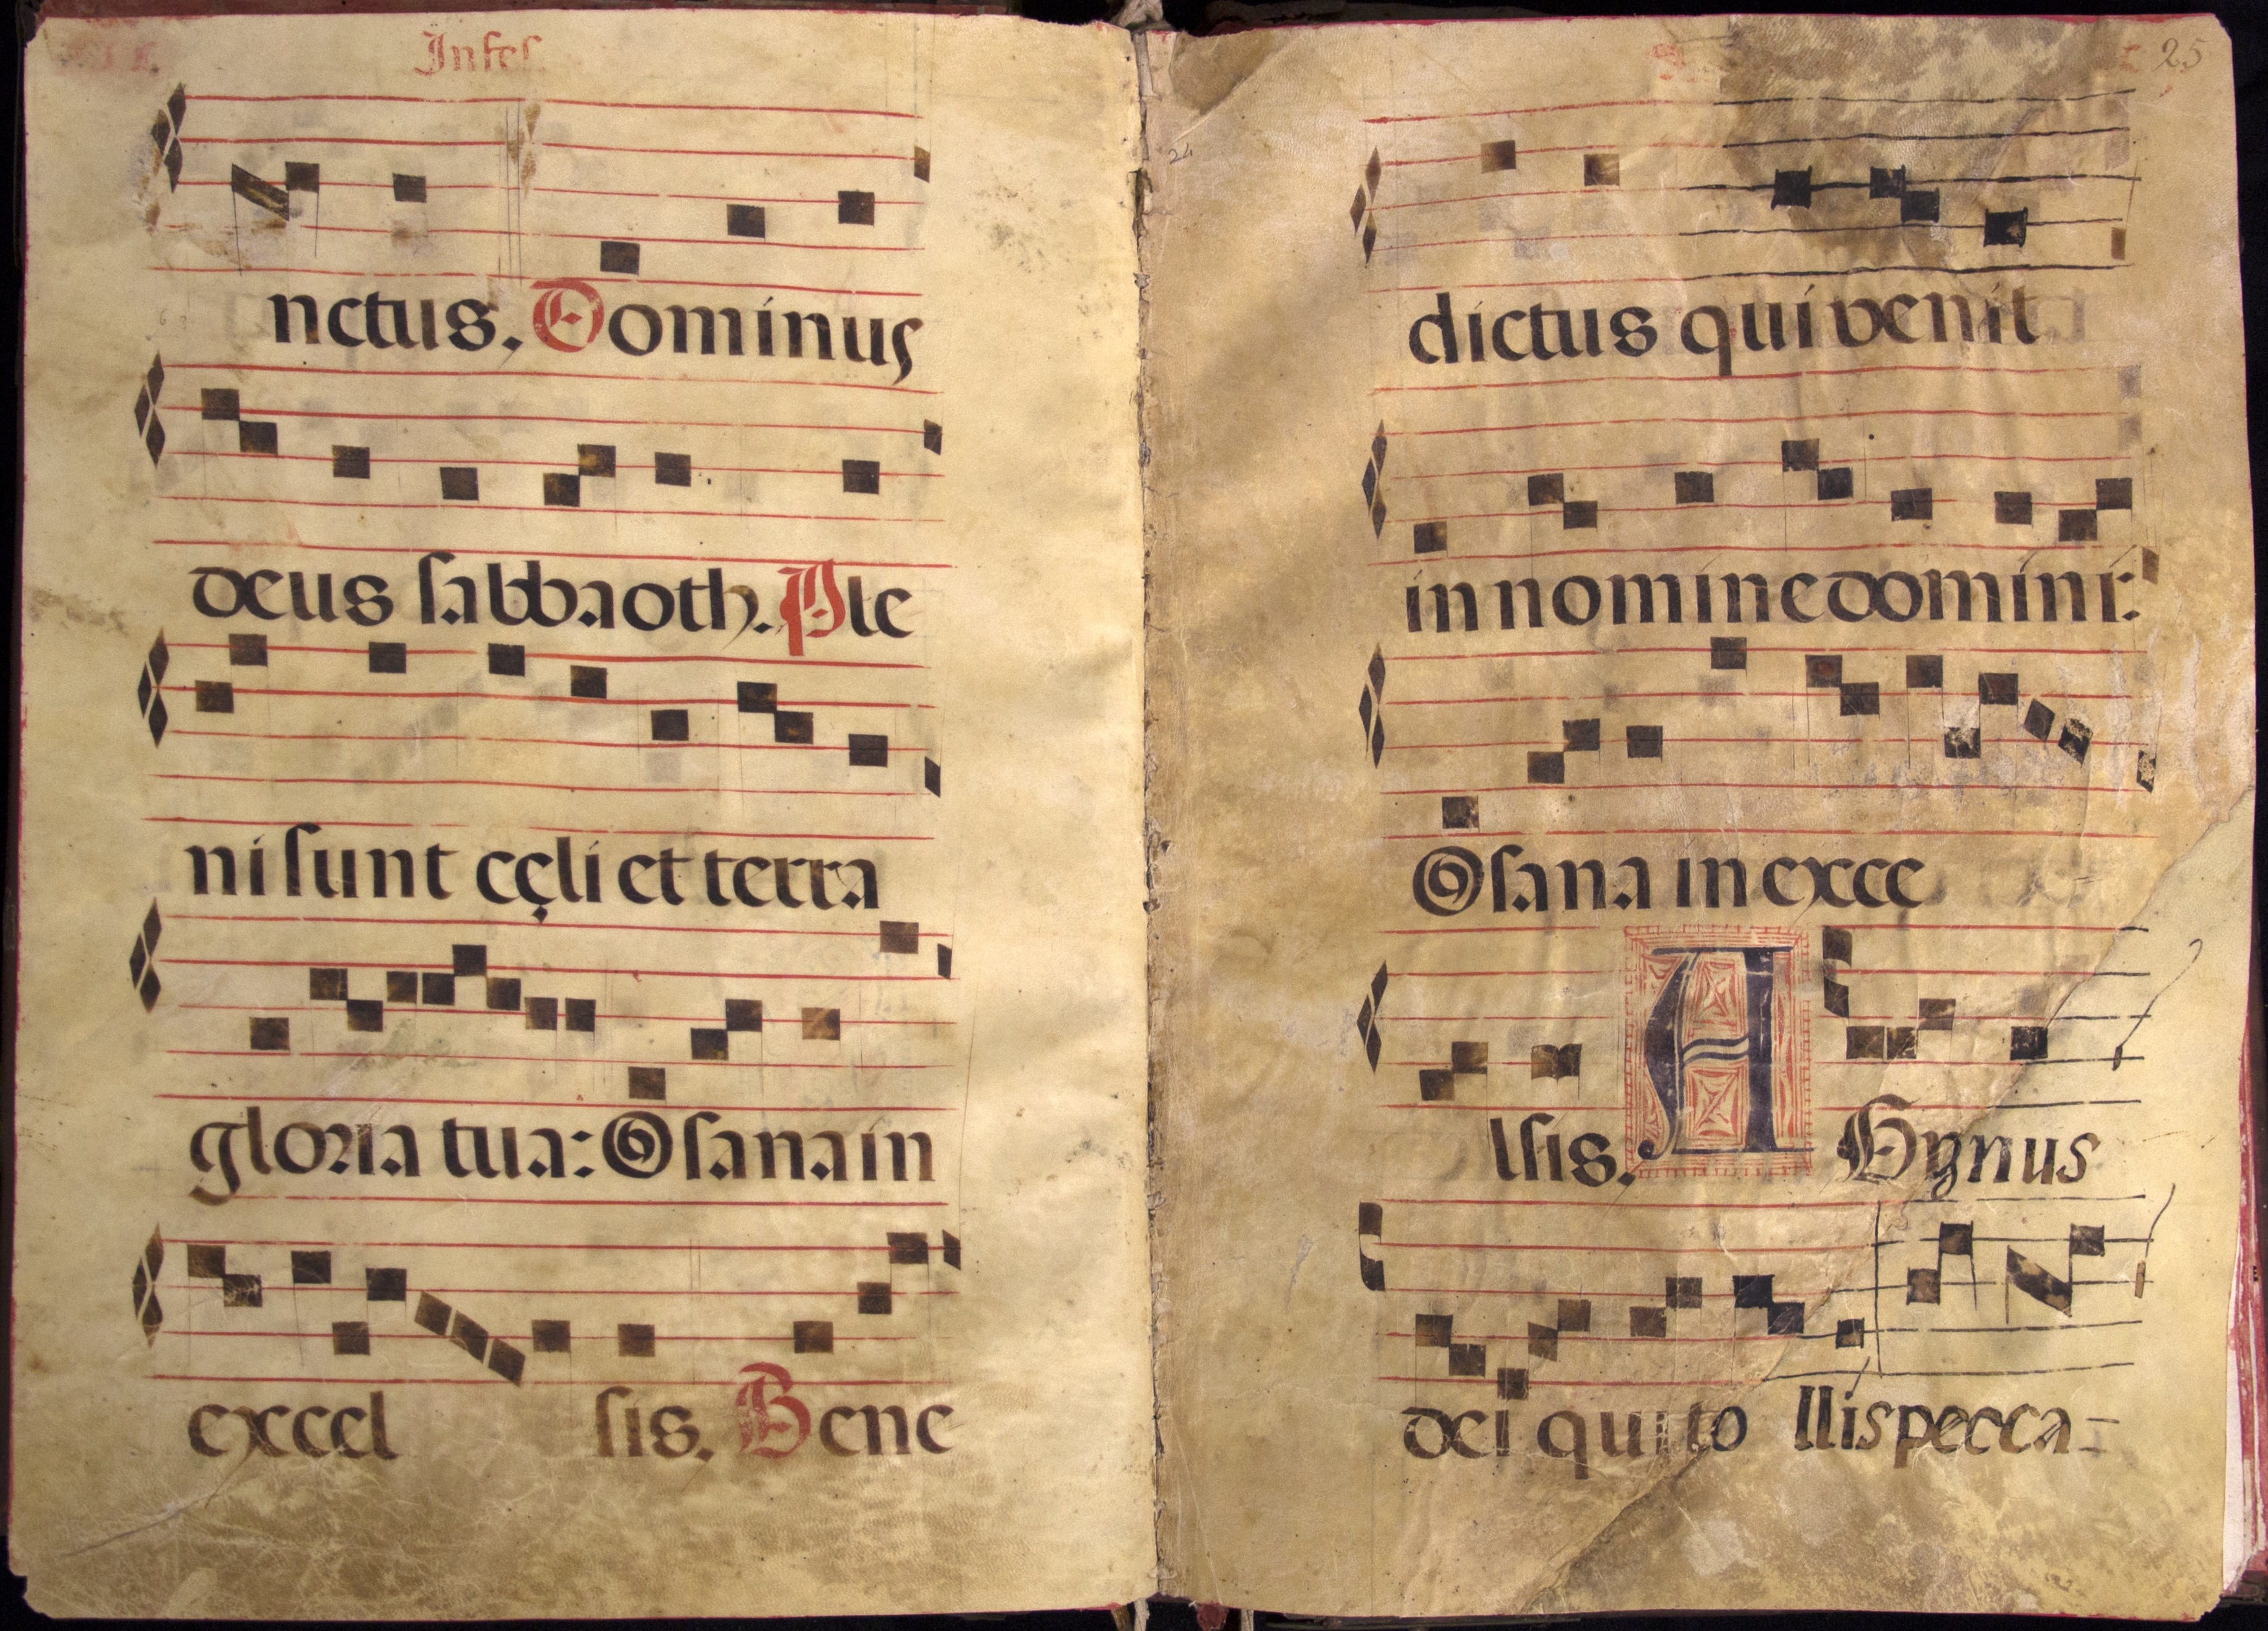 Infes
nctus. Dominus
deus sabbaoth. Ple
ni sunt cęli et terra
gloria tua: Osana in
excel sis. Bene
25
24
dictus qui venit
in nomine domini:
Osana in exce
lsis. A Hgnus
dei qui to llis pecca-